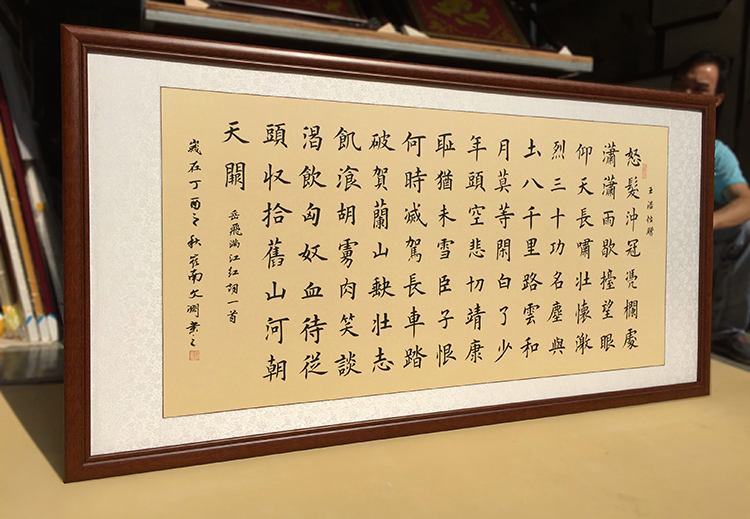 怒髮沖冠凴欄處
瀟瀟雨歇擡望眼
仰天長嘯壯懷激
烈三十功名塵與
土八千里路雲和
月莫等閑白了少
年頭空悲切靖康
恥猶未雪臣子恨
何時滅駕長車踏
破賀蘭山缺壯志
飢湌胡虜肉笑談
渴飲匈奴血待從
頭収拾舊山河朝
天闕
岳飛滿江紅詞一首
歲在丁酉之秋崔南文淵書之